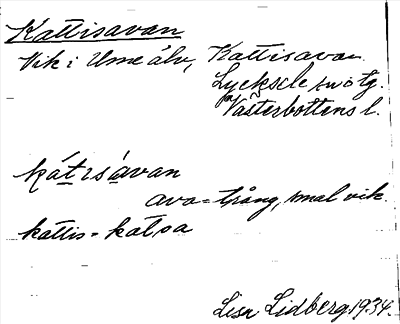 Kattisavan
Vik i Ume älv, Kattisavan
Lycksele sn o tg.
Västerbottens l.
kátısàvan
ava = trång, smal vik.
kattis = kátsa
Lisa Lidberg 1934.